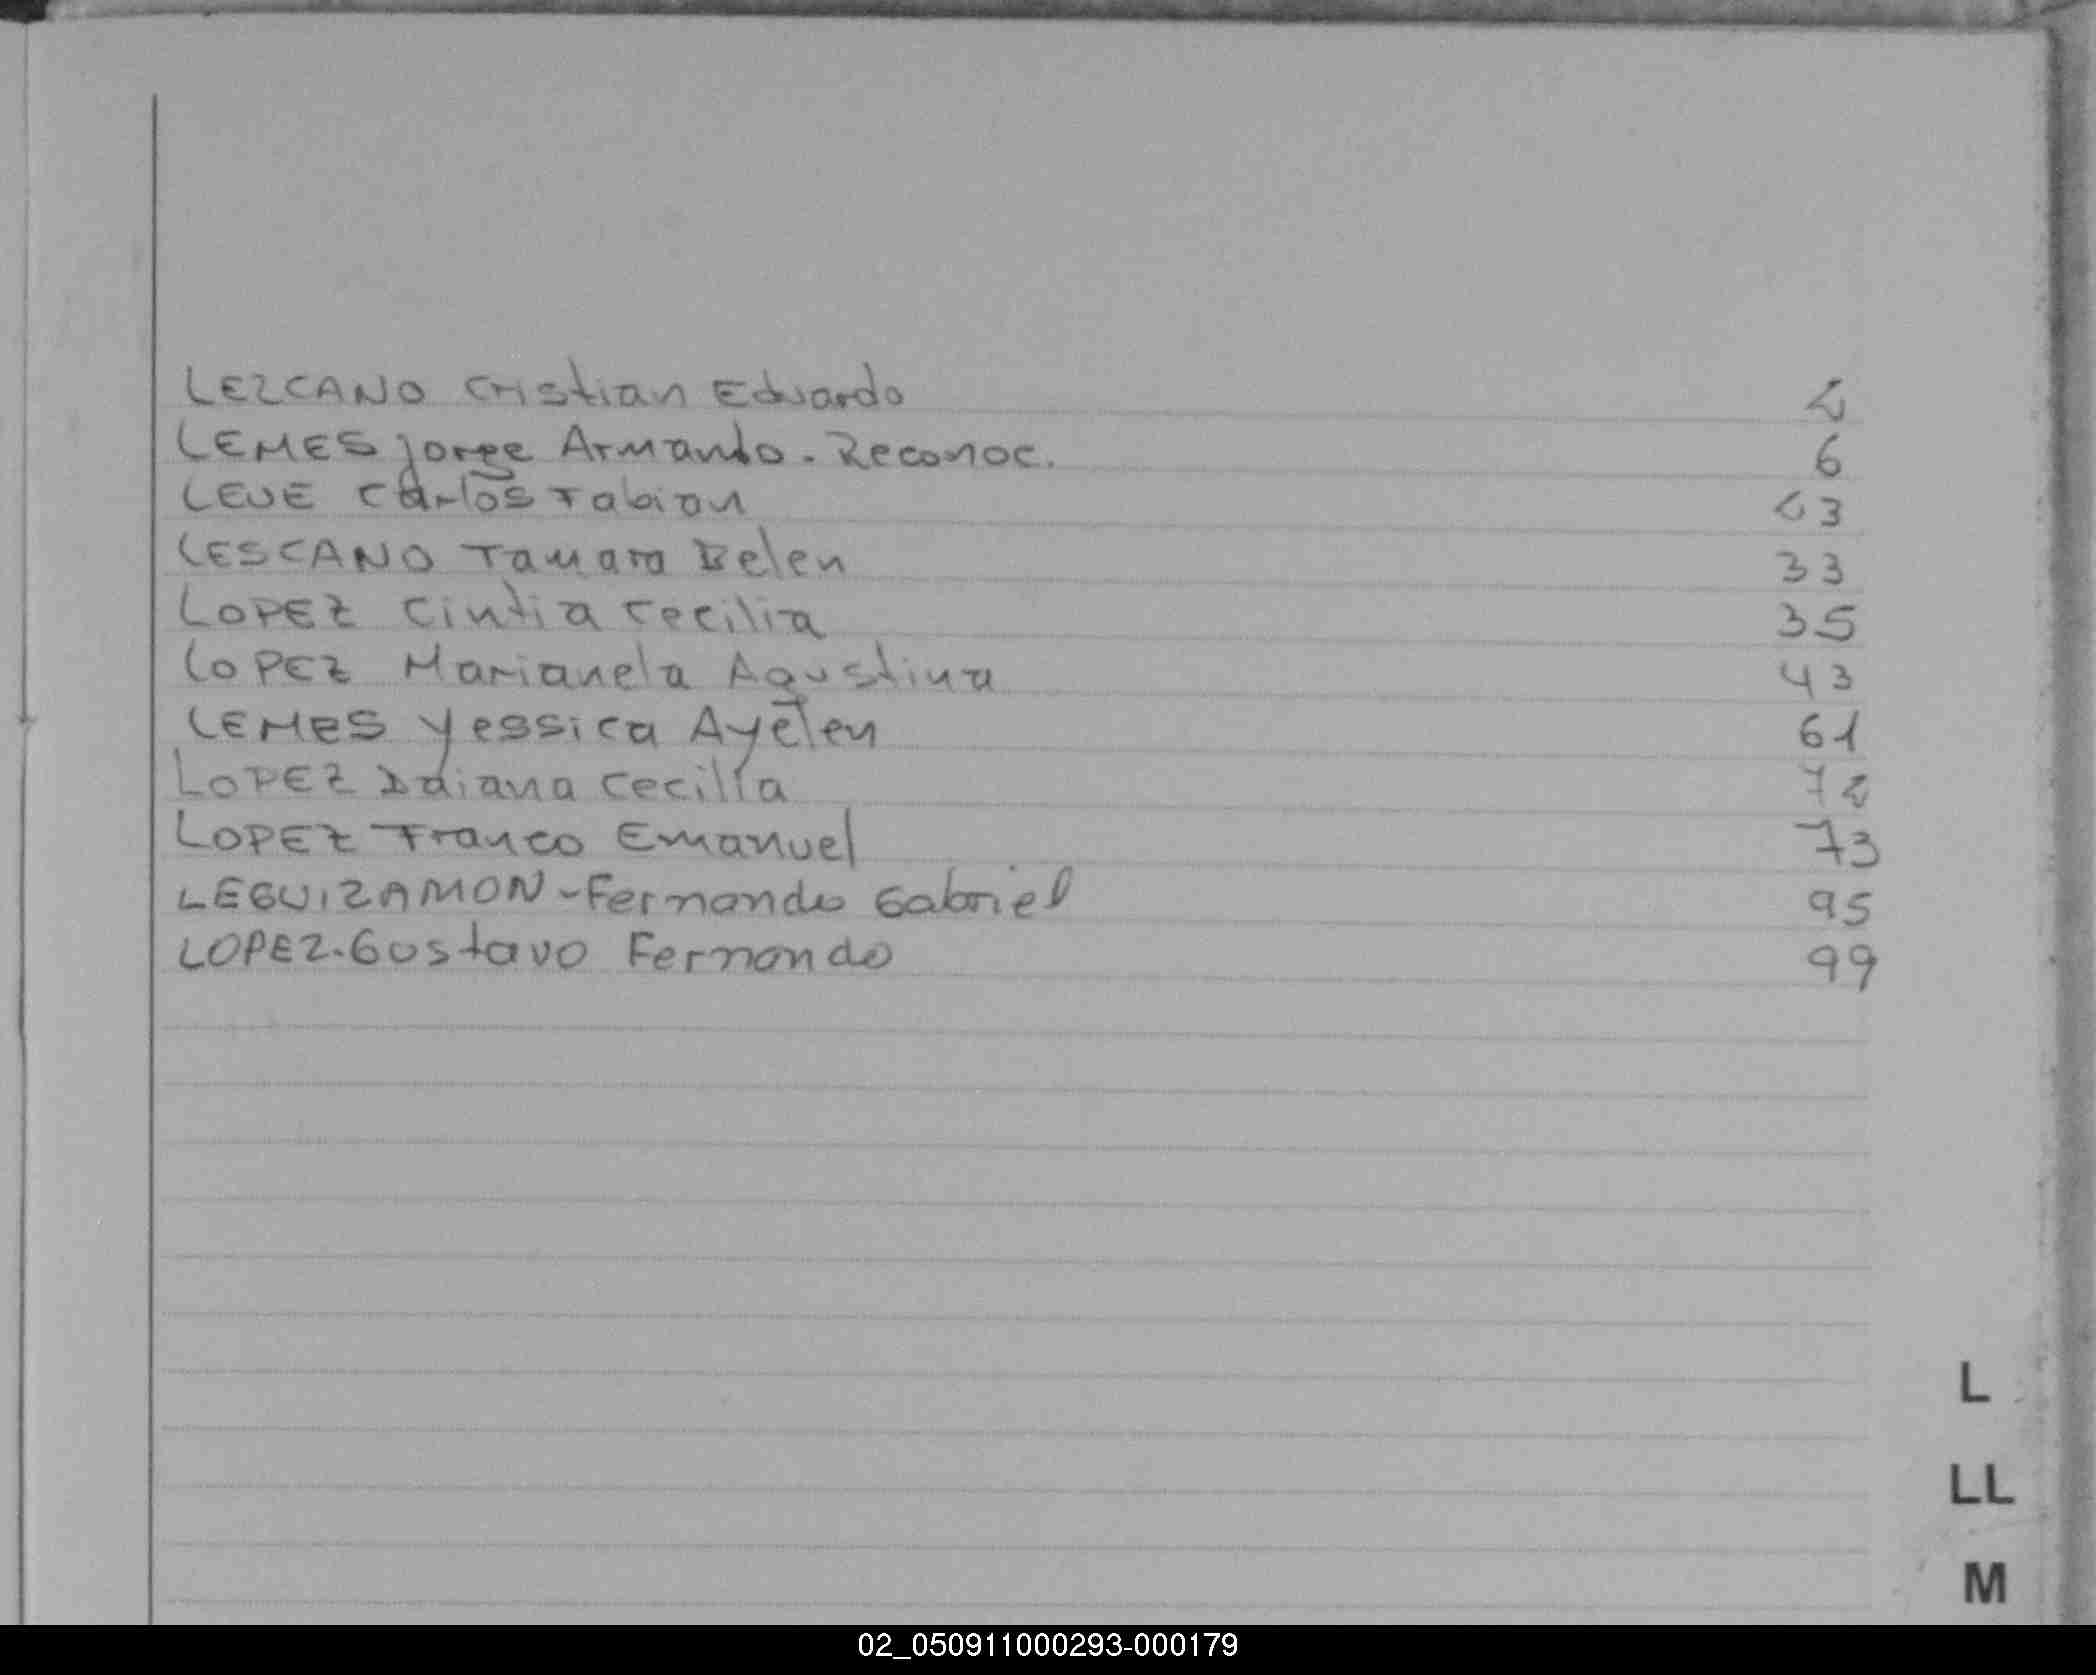 LEZCANO Cristian Eduardo 2
LEMES Jorge Armando. Reconoc. 6
LEUE Carlos Fabian 23
LESCANO Tamara Belen 33
LOPEZ Cintia Cecilia 35
LOPEZ Marianela Agustina 43
LEMES Yessica Ayelen 61
LOPEZ Daiana Cecilia 72
LOPEZ Franco Emanuel 73
LEGUIZAMON-Fernando Gabriel 95
LOPEZ.Gustavo Fernando 99
L
LL
M
02_050911000293-000179